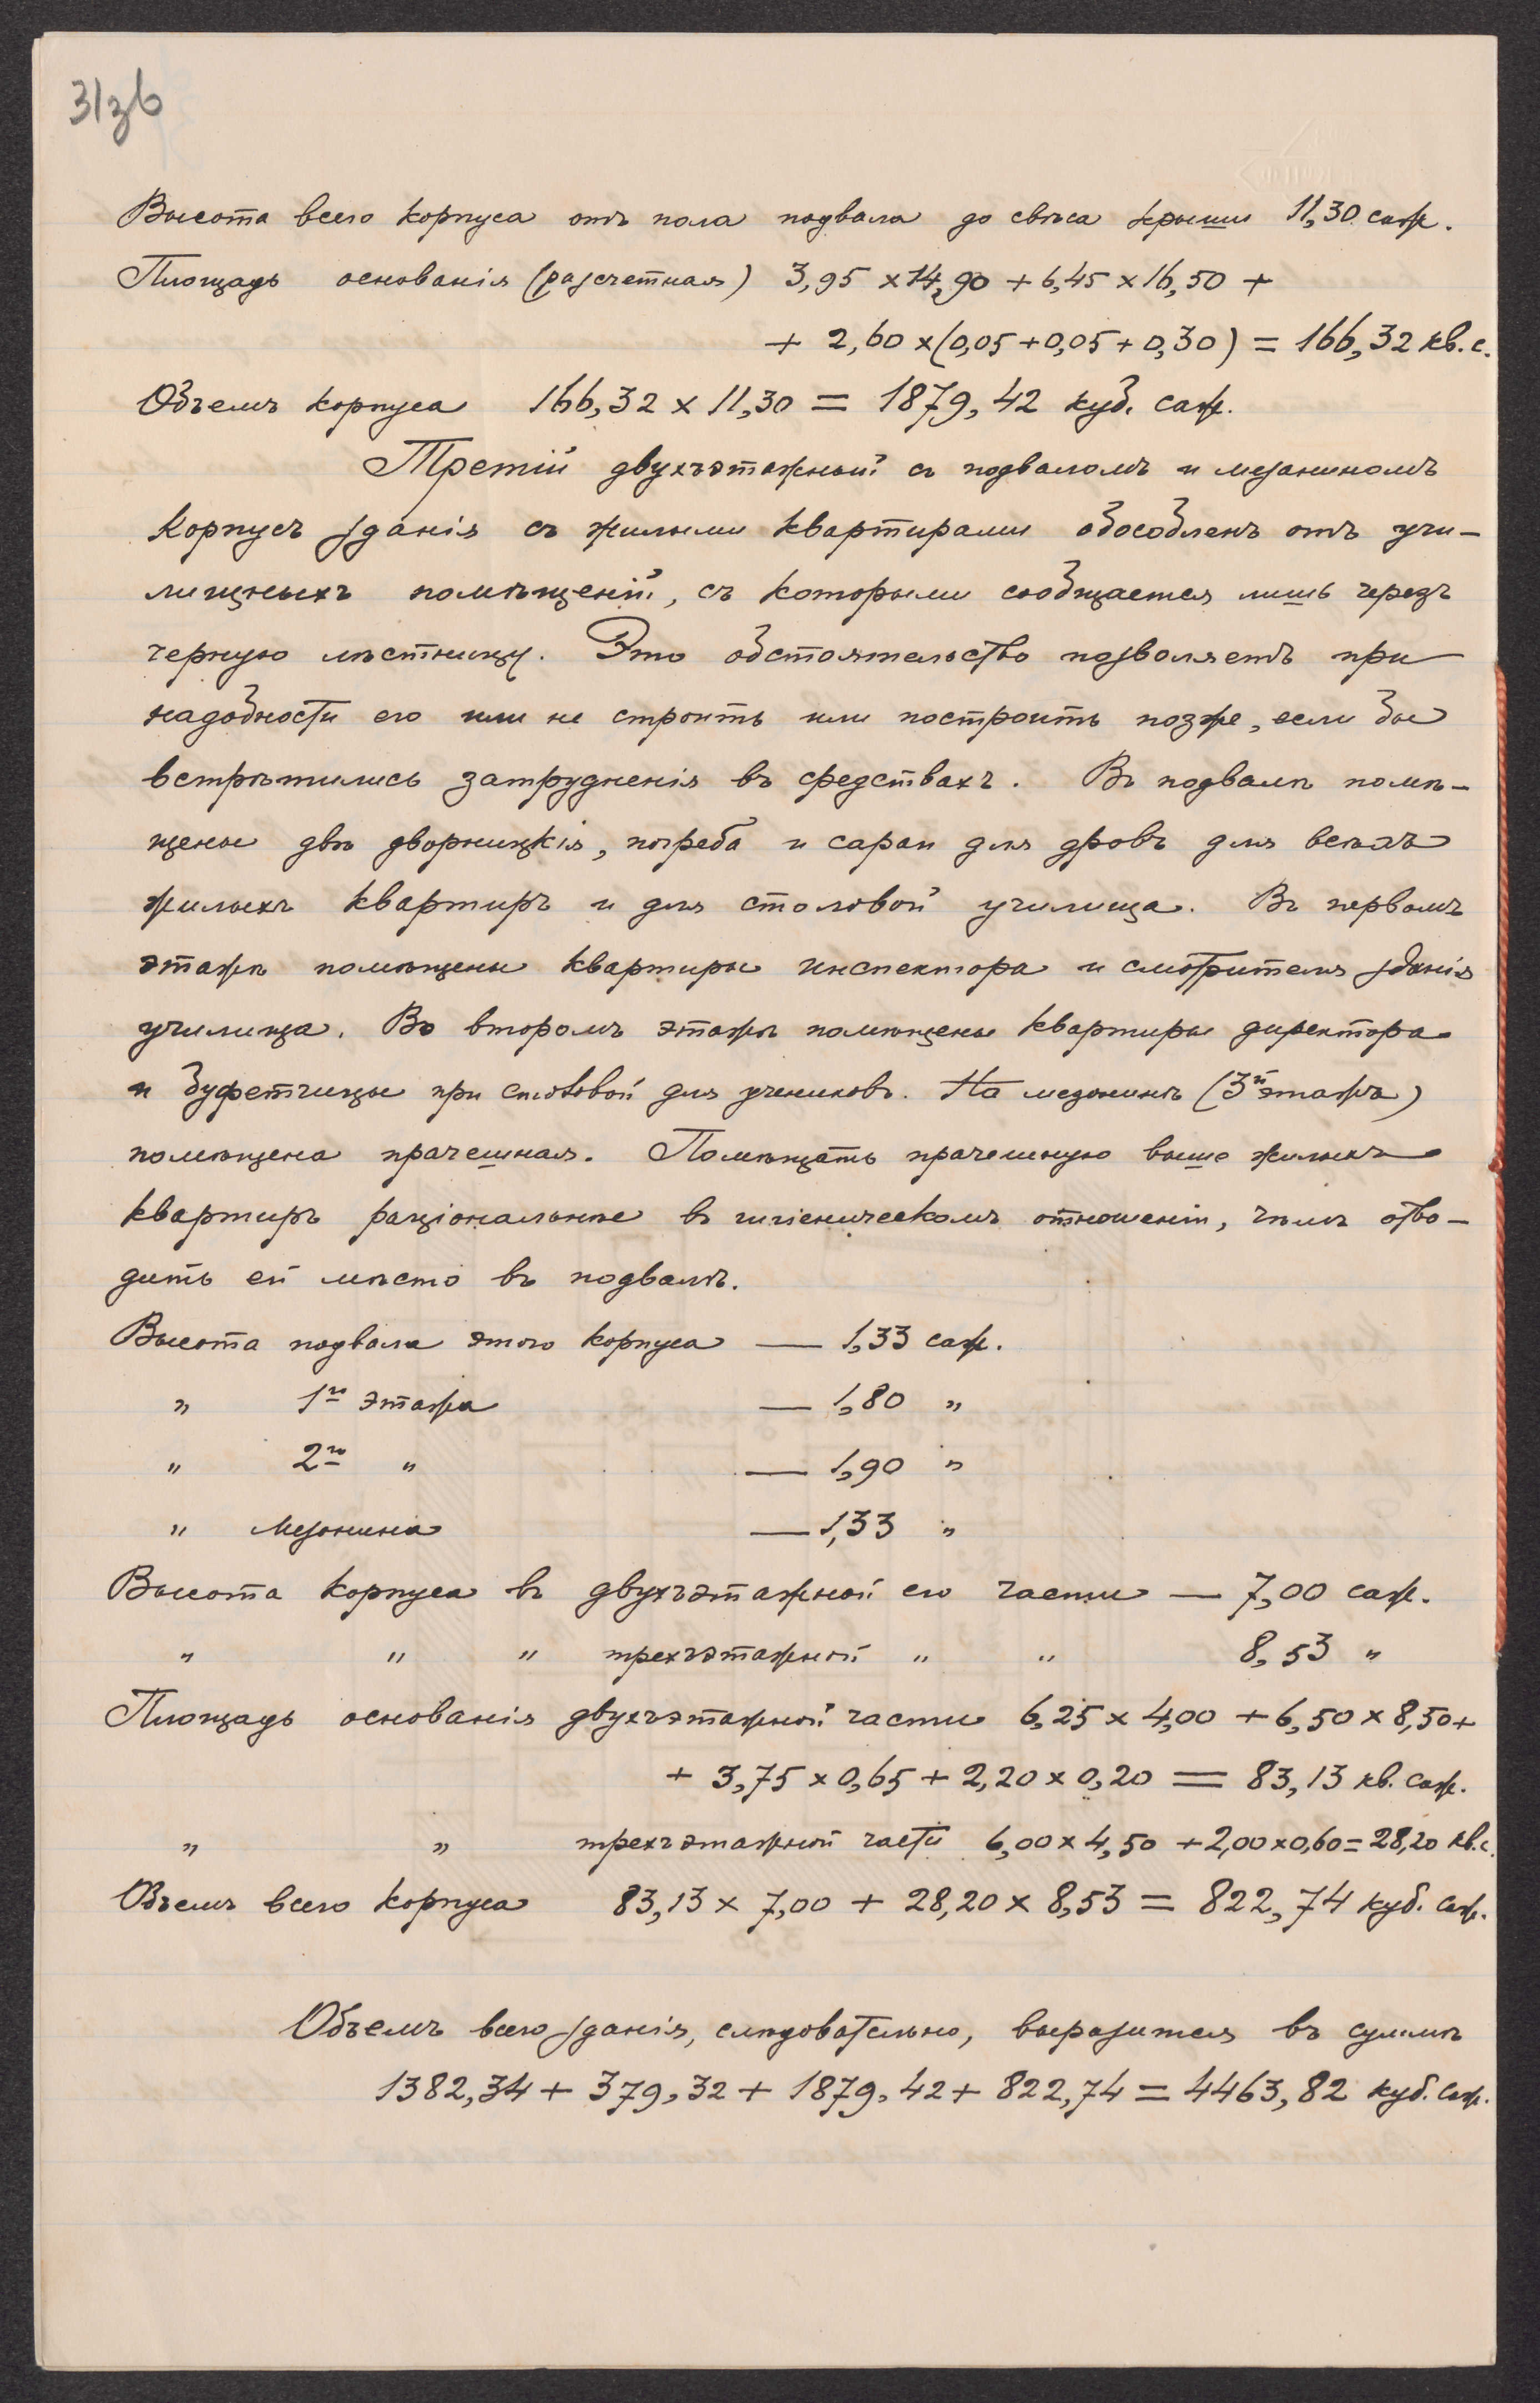 31зв
Высота всего корпуса отъ пола подвала до свѣса крыши 11,30 саж.
Площадь основанія (разсчетная) 3,95 × 14,90 + 6,45 × 16,50 +
+ 2,60 × (0,05 + 0,05 + 0,30) = 166,32 кв. с.
Объемъ корпуса 166,32 × 11,30 = 1879,42 куб. саж.
Третій двухъэтажный съ подваломъ и мезаниномъ
корпусъ зданія съ жилыми квартирами обособленъ отъ учи-
лищныхъ помѣщеній, съ которыми сообщается лишь черезъ
черную лѣстницу. Это обстоятельство позволяетъ при
надобности его или не строить или построить позже, если бы
встрѣтились затрудненія въ средствахъ. Въ подвалѣ помѣ-
щены двѣ дворницкія, погреба и сараи для дровъ для всѣхъ
жилыхъ квартиръ и для столовой училища. Въ первомъ
этажѣ помѣщены квартиры инспектора и смотрителя зданія
училища. Во второмъ этажѣ помѣщены квартиры директора
и буфетчицы при столовой для учениковъ. На мезонинѣ (3й этажъ)
помѣщена прачешная. Помѣщать прачешную выше жилыхъ
квартиръ раціональнѣе въ гигіеническомъ отношеніи, чѣмъ отво-
дить ей мѣсто въ подвалѣ.
Высота подвала этого корпуса — 1,33 саж.
„ 1го этажа — 1,80 „
„ 2го „ — 1,90 „
„ Мезонина — 1,33 „
Высота корпуса въ двухъэтажной его части — 7,00 саж.
„ „ „ трехъэтажной „ „ 8,53 „
Площадь основанія двухъэтажной части 6,25 × 4,00 + 6,50 × 8,50 +
+ 3,75 × 0,65 + 2,20 × 0,20 = 83,13 кв. саж.
„ „ трехъэтажной части 6,00 × 4,50 + 2,00 × 0,60 = 28,20 кв. с.
Объемъ всего корпуса 83,13 × 7,00 + 28,20 × 8,53 = 822,74 куб. саж.
Объемъ всего зданія, слѣдовательно, выразится въ суммѣ
1382,34 + 379,32 + 1879,42 + 822,74 = 4463,82 куб. саж.